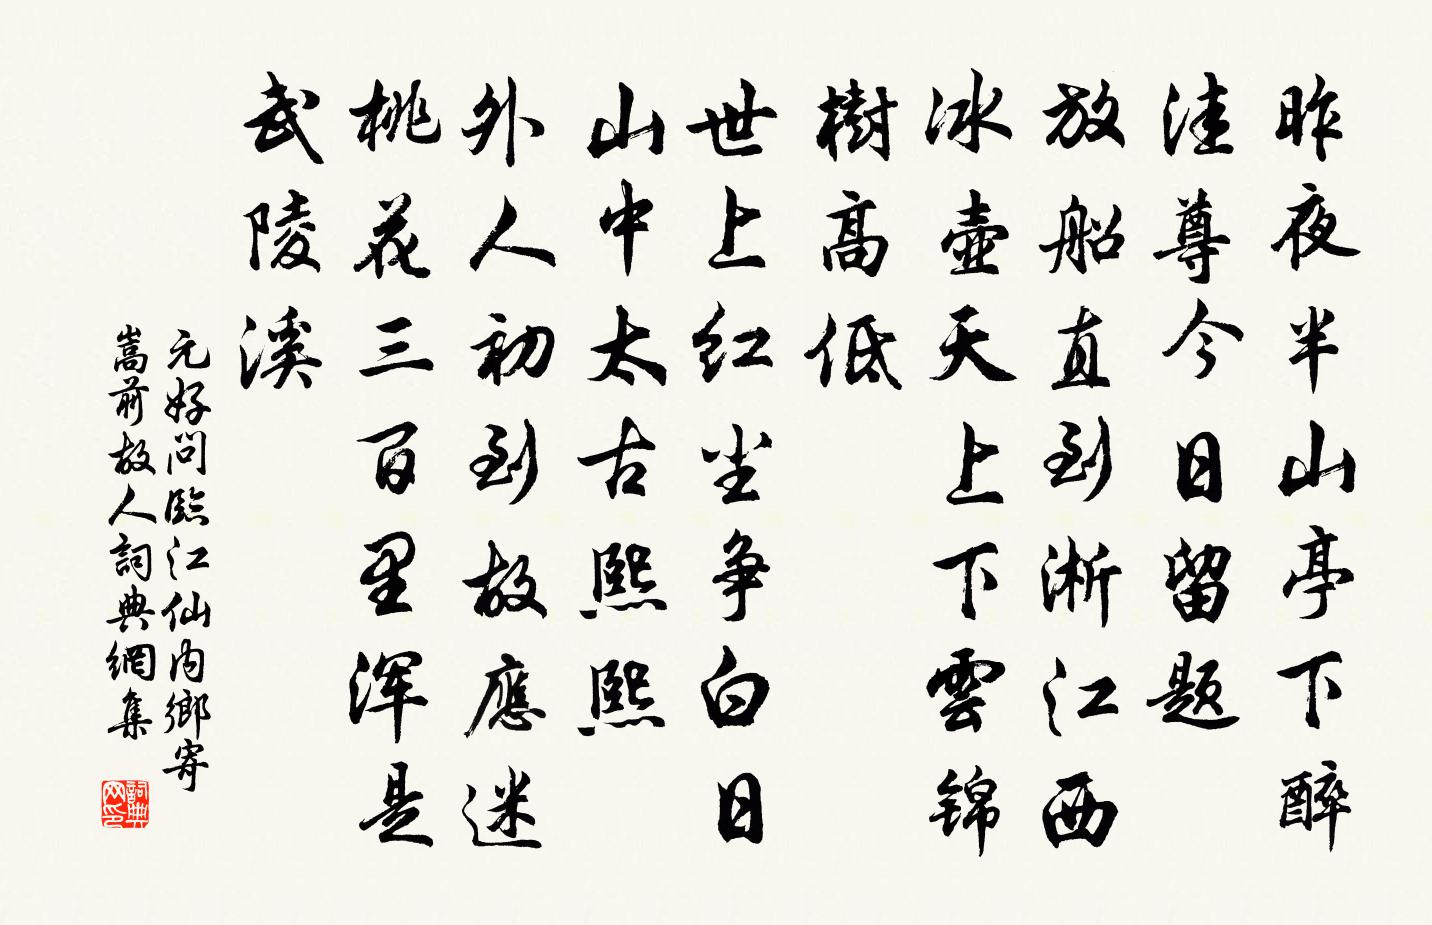 昨夜半山亭下醉
洼尊今日留题
放船直到淅江西
冰壶天上下雲锦
樹高低
世上红尘争白日
山中太古熙熙
外人初到故應迷
桃花三百里浑是
武陵溪
元好问臨江仙内鄉寄
嵩前故人詞典網集
詞典
网印